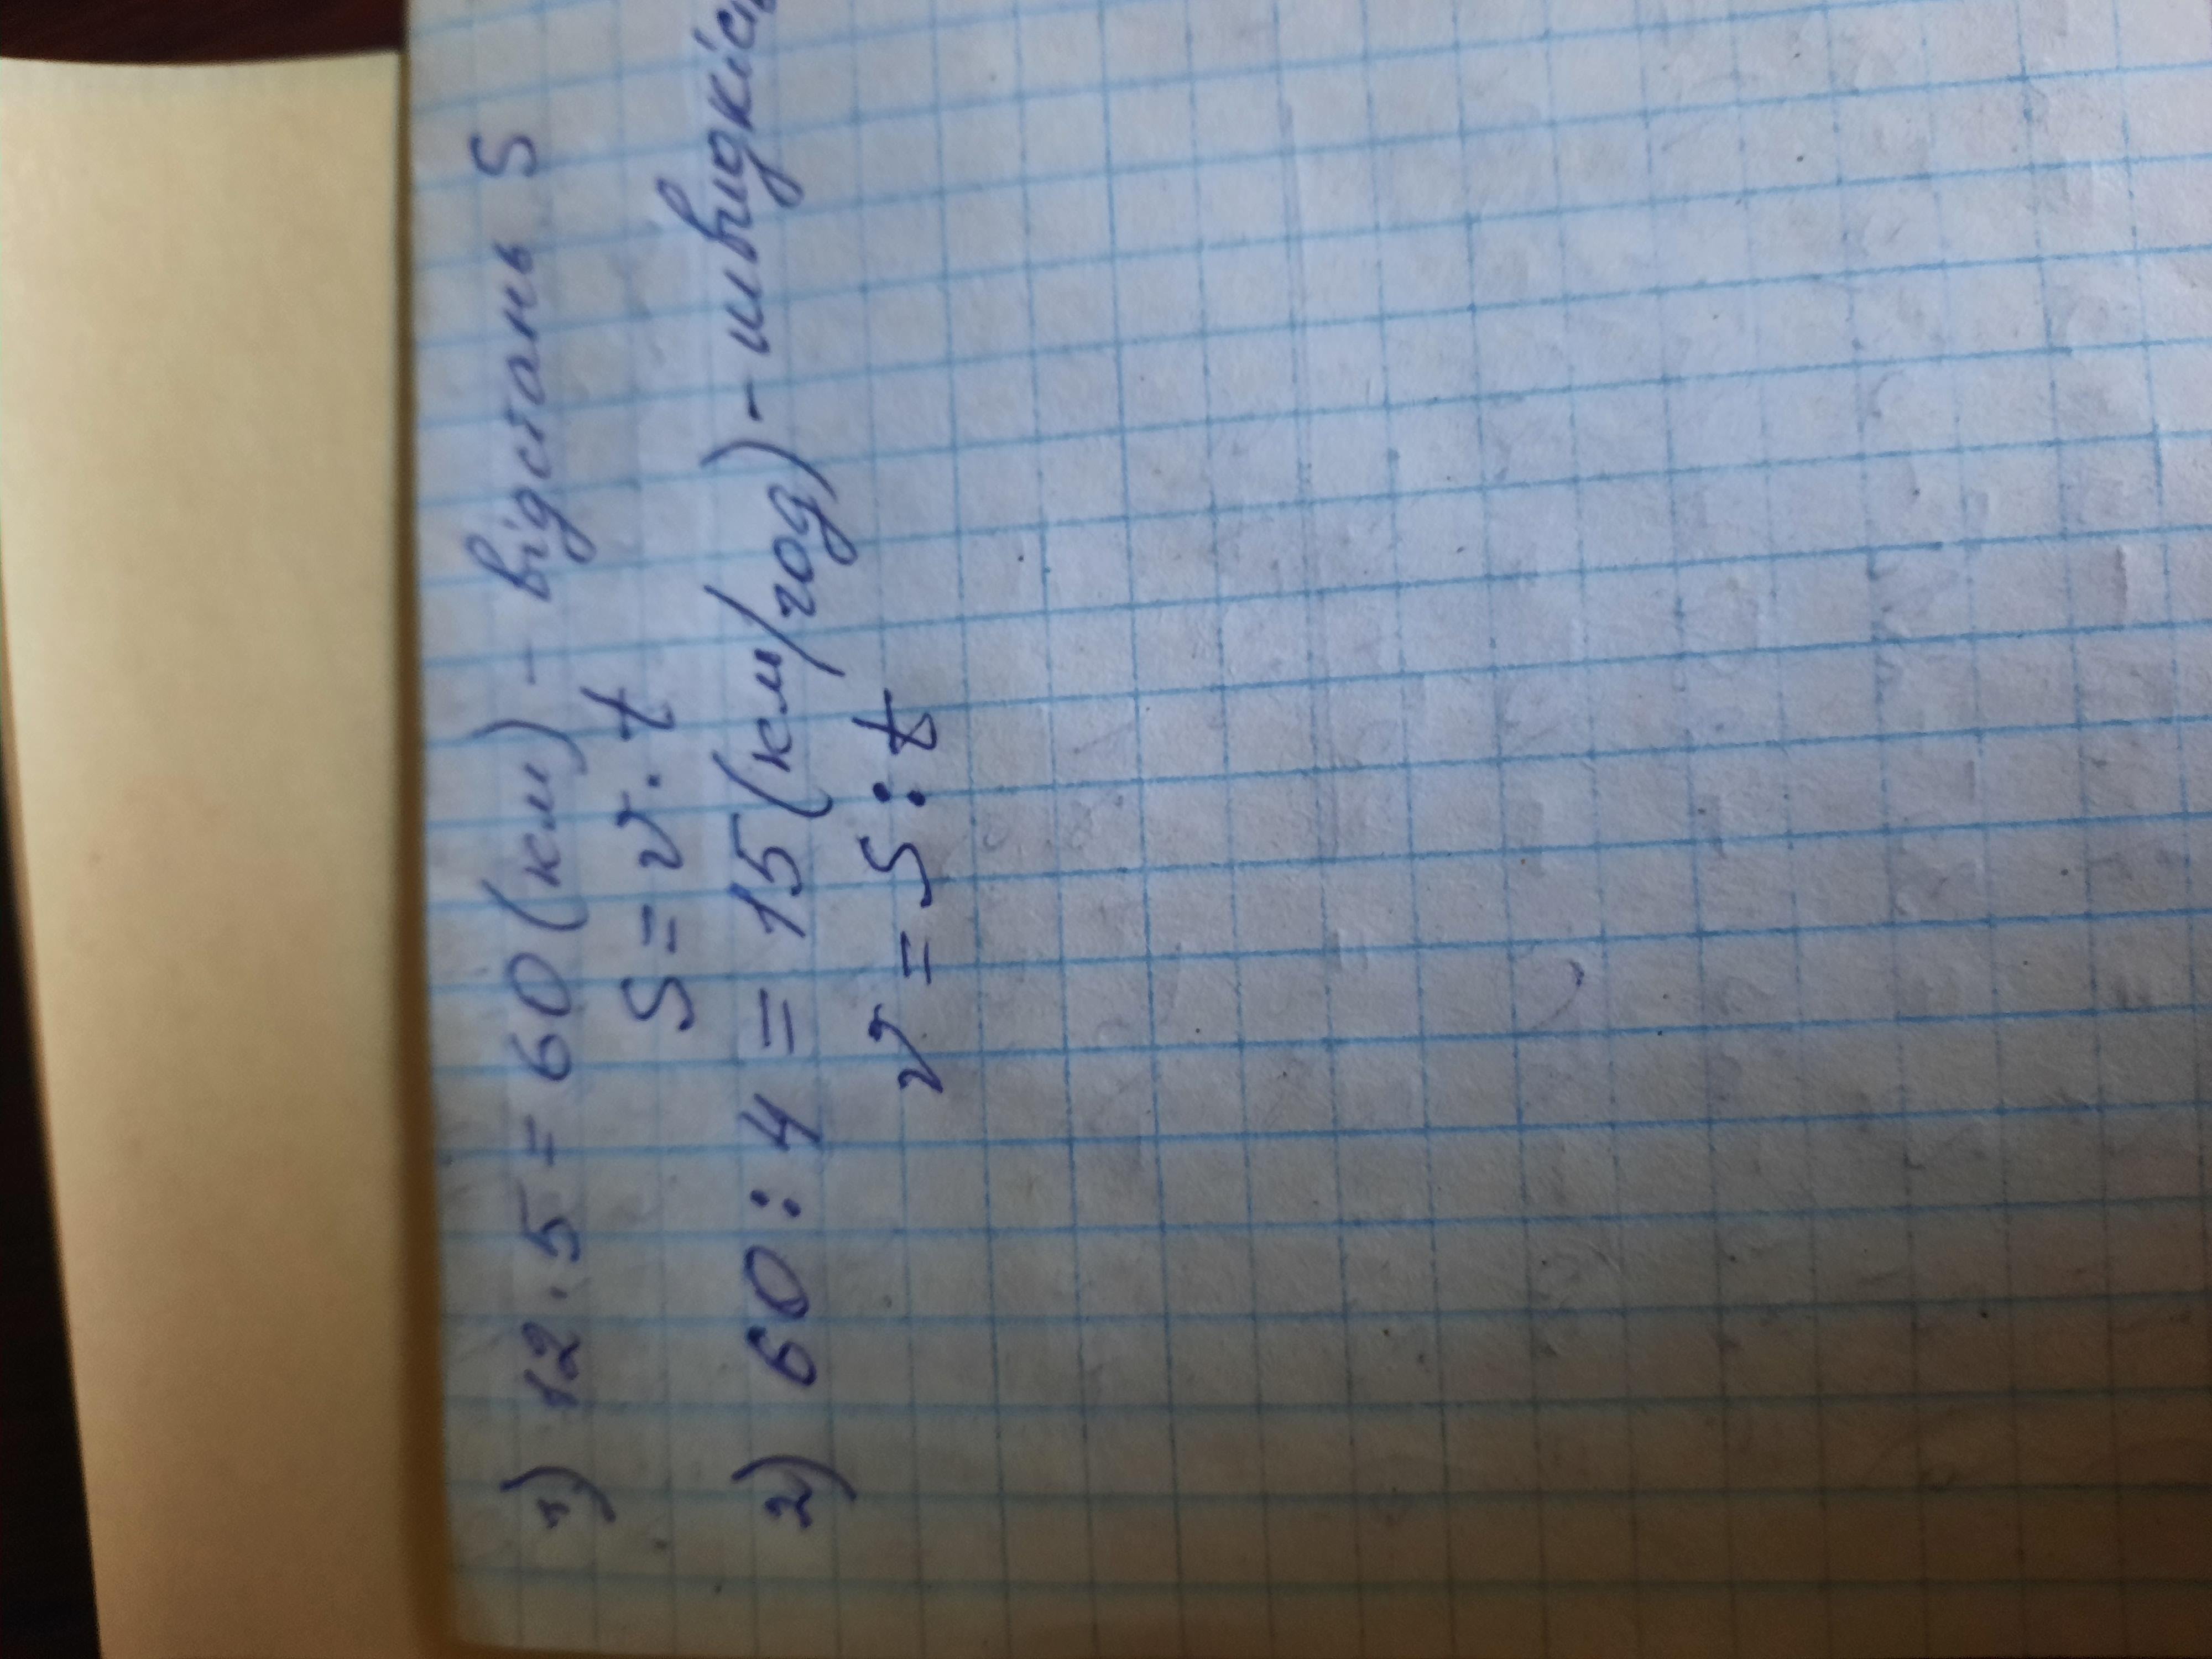 1) 12 · 5 = 60 (км) - відстань S
S = v · t
2) 60 : 4 = 15 (км/год) - швидкіс
v = S : t